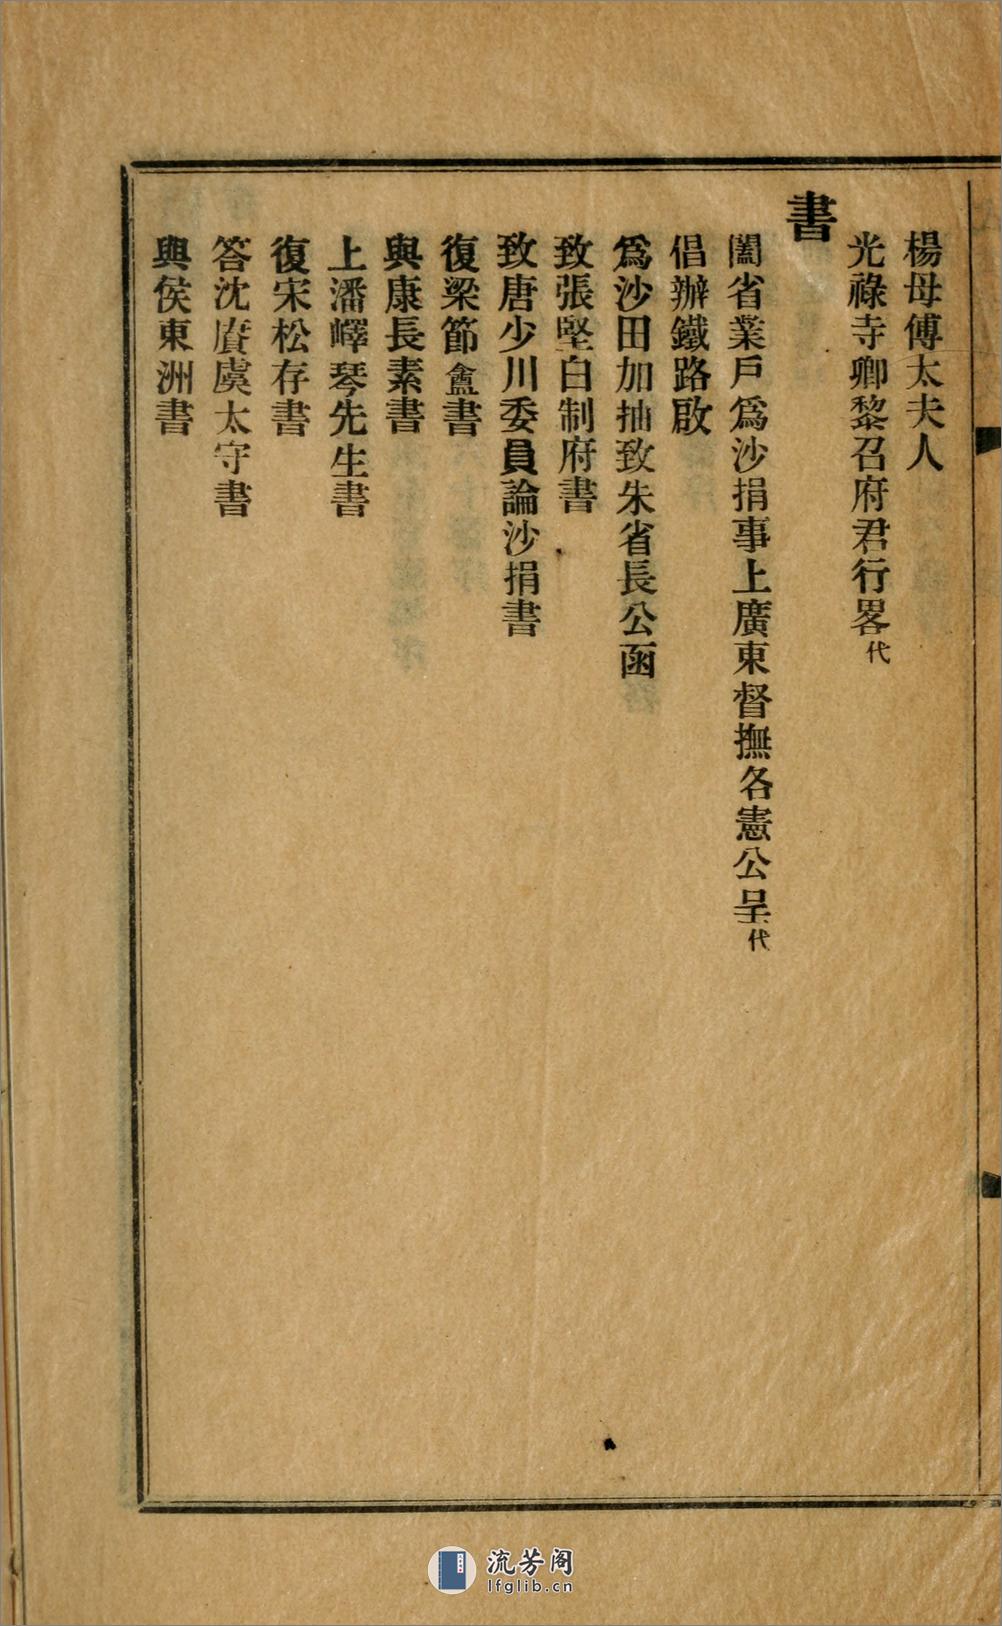 楊母傅太夫人
光祿寺卿黎召府君行畧代
書
闔省業戶爲沙捐事上廣東督撫各憲公呈代
倡辦鐵路啟
爲沙田加抽致朱省長公函
致張堅白制府書
致唐少川委員論沙捐書
復梁節盦書
與康長素書
上潘嶧琴先生書
復宋松存書
答沈賡虞太守書
與侯東洲書
流芳阁
lfglib.cn